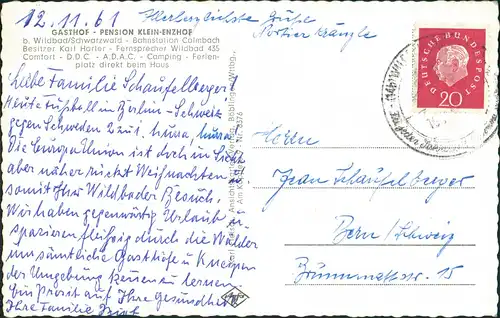 12.11.61 Herlenzlichste Grüße
Portier Kränzle
GASTHOF - PENSION KLEIN-ENZHOF
b. Wildbad/Schwarzwald - Bahnstation Calmbach
Besitzer Karl Harter - Fernsprecher Wildbad 435
Comfort - D.D.C. - A.D.A.C. - Camping - Ferien-
platz direkt beim Haus
Liebe Familie Schaufelberger
Heute Fußball in Berlin - Schweiz
gegen Schweden 2 zu 1, hura, hurra
Die Europa Union ist doch in Sicht
aber näher rückt Weihnachten u.
somit Ihr Wildbader Besuch.
Wir haben gegenwärtig Urlaub u
spazieren fleißig durch die Wälder
um sämtliche Gasthöfe u Kneipen
der Umgebung kennen zu lernen
Ein Prosit auf Ihre Gesundheit
Ihre Familie
DEUTSCHE BUNDESPOST
20
Herrn
Jean Schaufelberger
Bern/Schweiz
Brunnmattstr. 15